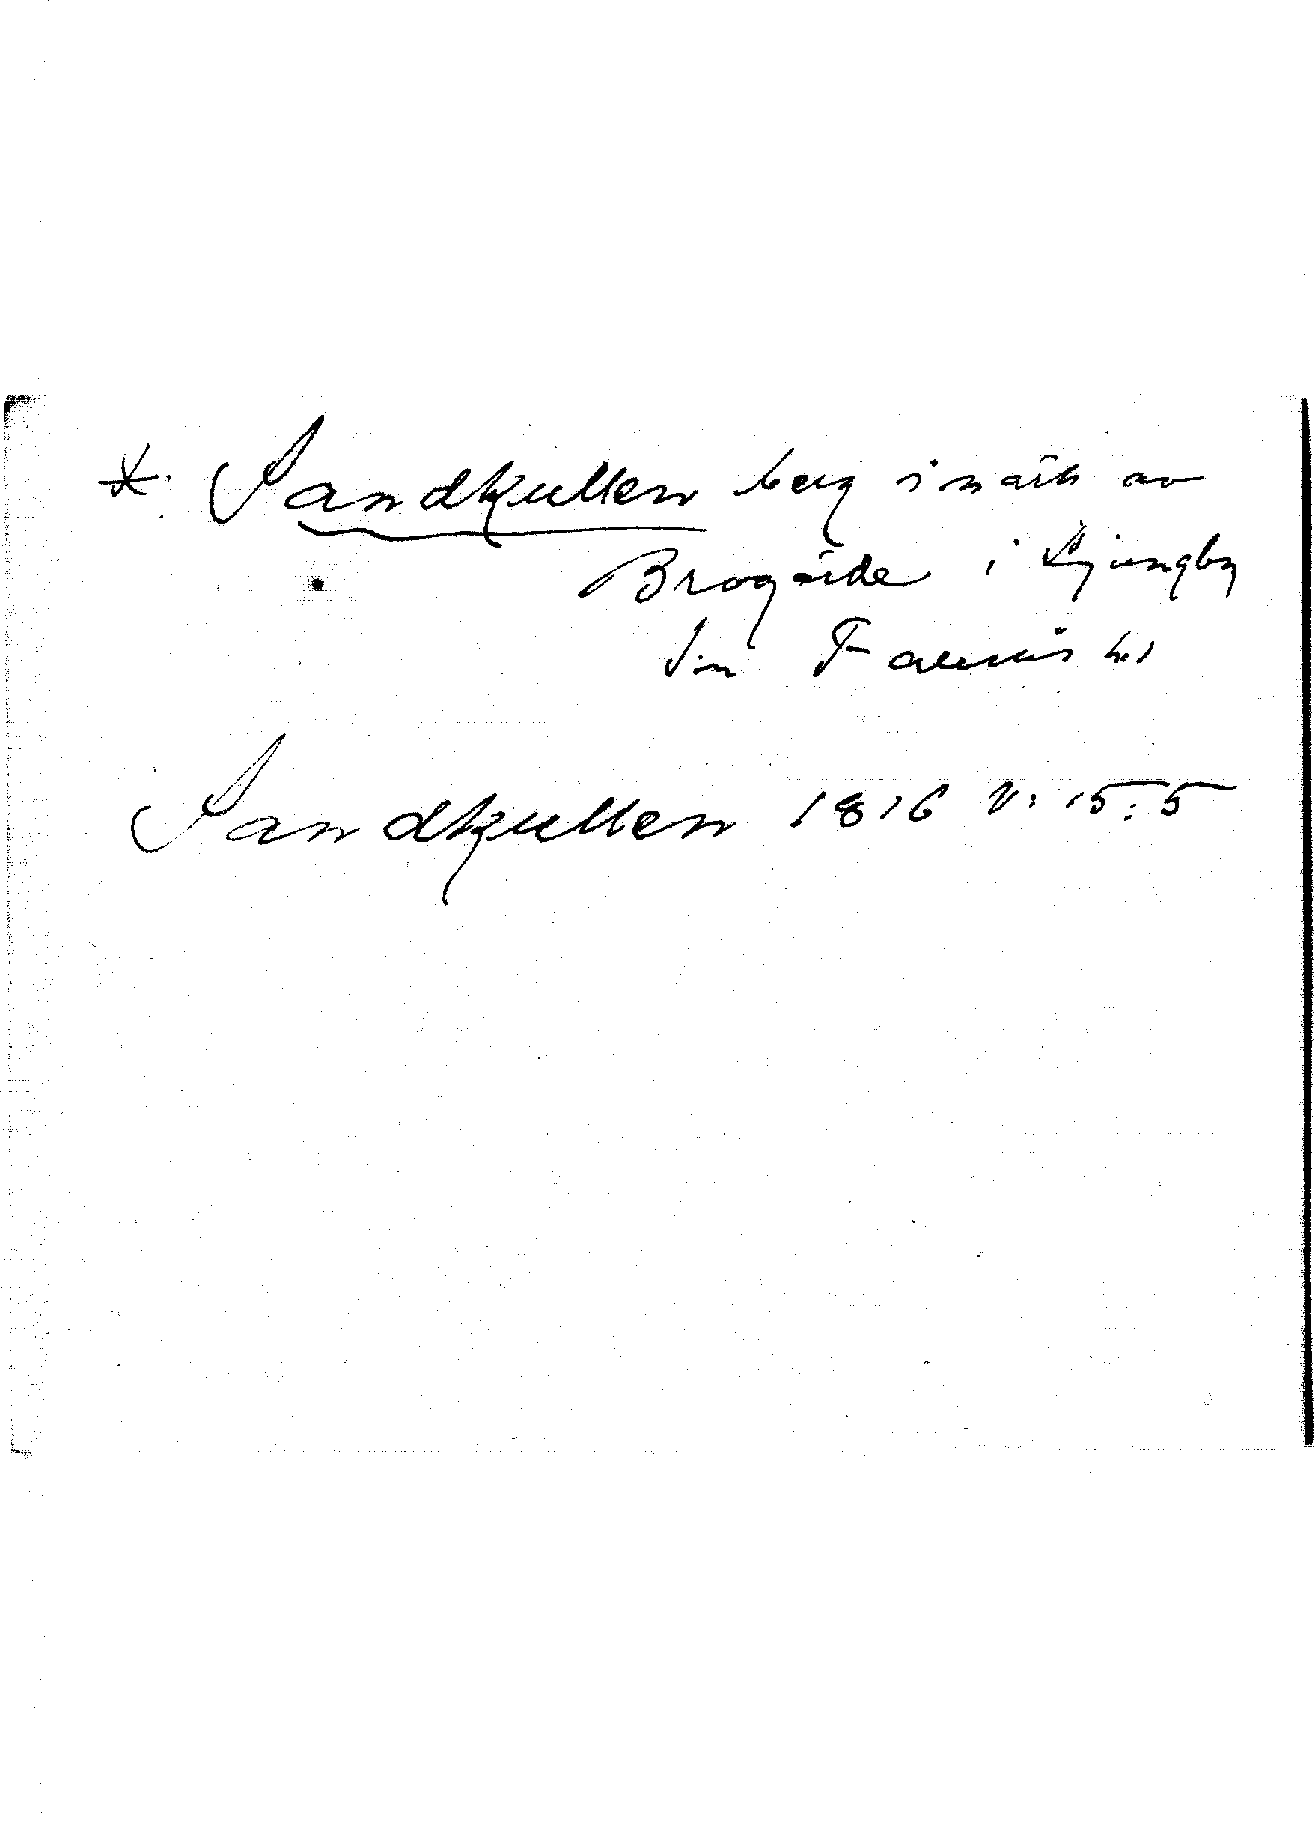 * Sandkullen berg i närh av
Brogärde i Ljungby
sn Faurås hd
Sandkullen 1816 V: 15:5